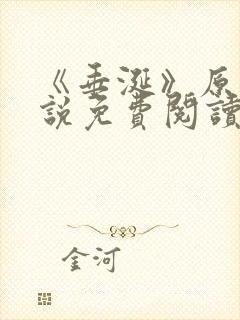 《垂涎》原
說免費閱讀
金河